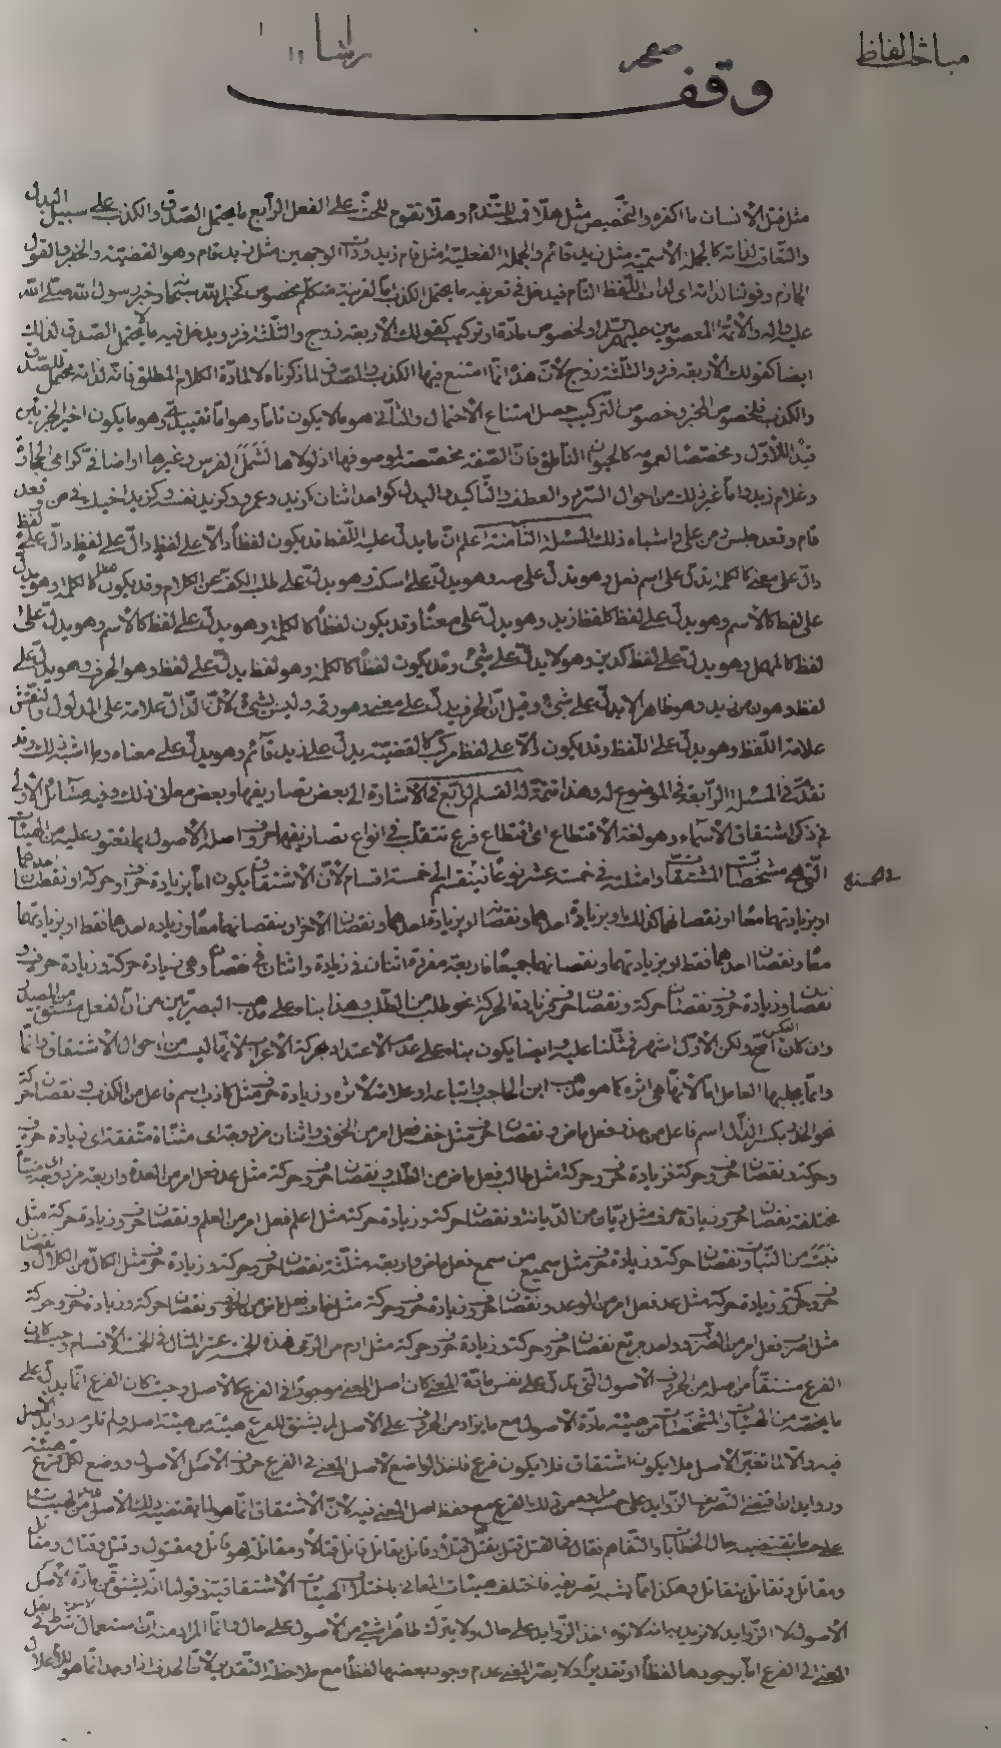 مباحث الفاظ
وقف
مثل قتل الانسان ما اكفره والتحضيض مثل هلا قمت للتندم وهلا تقوم للحث على الفعل الرابع ما يحتمل الصدق والكذب على سبيل البدل
لذاته كالجملة الاسمية مثل زيد قائم والجملة الفعلية مثل قام زيد وذات الوجهين مثل زيد قام وهو القضية والخبر والقول
الجازم وقولنا لذاته اى لذات اللفظ التام فيدخل فى تعريفه ما يحتمل الكذب لقرينة متكلم مخصوص كخبر الله وخبر رسول الله صلى الله
عليه واله والائمة المعصومين او لخصوص مادة او تركيب كقولك الاربعة زوج والثلثة فرد ويدخل فيه ما لا يحتمل الصدق لذلك
ايضا كقولك الاربعة فرد والثلثة زوج لان هذا انما امتنع فيها الكذب والصدق لما ذكرناه لا لمادة الكلام المطلق فانه لذاته يحتمل للصدق
والكذب فلخصوص الخبر وخصوص التركيب حصل امتناع الاحتمال والثانى هو ما لا يكون تاما وهو اما تقييدى وهو ما يكون اخير الجزئين
قيدا للاول ومخصصا لعمومه كالحيوان الناطق فان الصفة مخصصة لموصوفها اذ لولاها لشمل الفرس وغيرها او اضافى كرامى الحجارة
وغلام زيد واما غير ذلك من احوال والعطف والتأكيد والبدل كواحد اثنان كزيد وعمرو وكزيد نفسه وكزيد اخيك فى من وقعد
قام وقعد جلس ومن على واشباه ذلك المسئلة الثامنة اعلم ان ما يدل عليه اللفظ قد يكون لفظا دالا على لفظ دال على لفظ
دال على معنى كالكلمة تدل على اسم فعل وهو تدل على صه وهو يدل على اسكت وهو يدل على طلب الكف عن الكلام وقد يكون كالكلمة وهو يدل
على لفظ كالاسم وهو يدل على لفظ كلفظ زيد وهو يدل على معنى وقد يكون لفظا كالكلمة وهو يدل على لفظ كالاسم وهو يدل على
لفظ كالمهمل وهو يدل على لفظ كديز وهو لا يدل على شئ وقد يكون لفظا كالكلمة وهو لفظ يدل على لفظ وهو الحرف وهو يدل على
لفظ وهو ز من زيد وهو ظاهرا لا يدل على شئ وقيل ان الحرف يدل على معنى وهو رقمه وليس بشئ لان الدال علامة على المدلول والنقش
علامة اللفظ وهو يدل على اللفظ وقد يكون دالا على لفظ مركب كالقضية يدل على زيد قائم وهو يدل على معناه وما اشبه ذلك وقد
تقدم فى المسئلة الرابعة فى الموضوع له وهذا تتمة له القسم الرابع فى الاشارة الى بعض تصاريفها وبعض معانى ذلك وفيه مسائل الاولى
فى ذكر اشتقاق الاسماء وهو لغة الاقتطاع اى اقتطاع فرع تتقلب فى انواع تصاريفها حروف اصله الاصول بما تعتور عليه من الهيئات
التى هى مشخصات المشتقات وامثلته فى خمسة عشر نوعا فينقسم الى خمسة اقسام لان الاشتقاق يكون اما بزيادة حرف او حركة او نقصان احدهما
او بزيادتهما معا او نقصانهما كذلك او بزيادة احدهما ونقصانه او بزيادة احدهما ونقصان الآخر او بنقصانهما معا وزيادة احدهما فقط او بزيادتهما
معا ونقصان احدهما فقط او بزيادتهما ونقصانهما جميعا فاربعة مفردة اثنان فى زيادة واثنان فى نقصان وهى زيادة حركة وزيادة حرف و
نقصان وزيادة حرف ونقصان حركة ونقصان حرف فزيادة الحركة نحو طلب من الطلب وهذا بناء على مذهب البصريين من ان الفعل مشتق من المصدر
وان كان العكس اصح ولكن الاول اشهر فمثلنا عليه وايضا يكون بناء على عدم الاعتداد بحركة الاعراب لانها ليست من احوال الاشتقاق وانما
وانما يجلبها العامل اما لانها هى اثره كما هو مذهب ابن الحاجب واتباعه او علامة لاثره وزيادة حرف مثل كاذب اسم فاعل من الكذب ونقصان حركة
نحو الحذر بكسر الذال اسم فاعل من حذر فعل ماض ونقصان حرف مثل خف فعل امر من الخوف واثنان مزدوجة اى مثناة متفقة اى زيادة حرف
وحركة ونقصان حرف وحركة فزيادة حرف وحركة مثل طالب فعل ماض من الطلب ونقصان حرف وحركة مثل عد فعل امر من العدة واربعة مزدوجة اى مثناة
مختلفة نقصان حرف وزيادة حرف مثل ديان من الديانة ونقصان حركة وزيادة حركة مثل اعلم فعل امر من العلم ونقصان حرف وزيادة حركة مثل
نبت من النبات ونقصان حركة وزيادة حرف مثل سميع من سمع فعل ماض واربعة مثلثة نقصان حرف وحركة وزيادة حرف مثل الكال من الكلال و نقصان
حرف وحركة وزيادة حركة مثل عد فعل امر من الوعد ونقصان حرف وزيادة حرف وحركة مثل خاف فعل ماض من الخوف ونقصان حركة وزيادة حرف وحركة
مثل اضرب فعل امر من الضرب وواحد مربع نقصان حرف وحركة وزيادة حرف وحركة مثل ارم من الرمى فهذه الخمسة عشر المثال فى الخمسة الاقسام وحيث كان
الفرع مشتقا من اصله من الحروف الاصول التى تدل على نفس مادة المعنى كان اصل المعنى موجودا فى الفرع كالاصل وحيث كان الفرع انما يدل على
ما يخصه من الهيئات والمشخصات من هيئة مادة الاصول مع ما يزاد من الحروف على الاصل لم يشتق للفرع هيئة من هيئة اصله ولم تلزم زوايد الاصل
فيه والا لما تغير الاصل فلا يكون اشتقاق فلا يكون فرع فاخذ الواضع لاصل المعنى فى الفرع حروف الاصل الاصول ووضع لكل فرع هيئة
وزوايد ان اقتضى التصريف الزوايد على حسب من ذلك الفرع مع حفظ اصل المعنى فيه لان الاشتقاق انما هو لما يقتضيه ذلك الاصل من الهيئات
على حسب ما يقتضيه حال الخطاب والتفاهم فقال فى القتل قتل يقتل قتلا وقاتل يقاتل قتالا ومقاتلة فهو قاتل ومقتول وقتل وقتال ومقاتل
ومقاتل وتقاتل يتقاتل وهكذا تصريفه فاختلف هيئات المعانى باختلاف الهيئات الاشتقاقية وقولنا انه يشتق من مادة الاصل
الاصول لا الزوايد لا نريد به انه لا توخذ الزوايد على حال ولا يترك شئ من الاصول على حال وانما المراد منه ان استعمال
المعنى الى الفرع اما بوجودها لفظا او تقديرا ولا يضر المعنى عدم وجود بعضها لفظا مع ملاحظة التقدير لان الحذف اذا وجد انما هو للاعلال